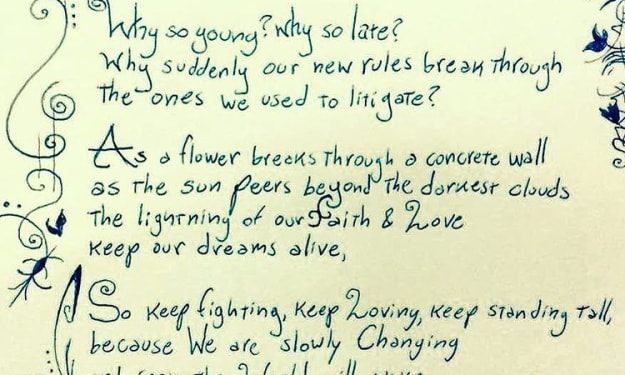 Why so young? Why so late?
Why suddenly our new rules break through
the ones we used to litigate?
As a flower breeks through a concrete wall
as the sun peers beyond the darkest clouds
the lightning of our Faith & Love
keep our dreams alive,
So keep fighting, keep Loving, keep standing tall,
because We are slowly Changing